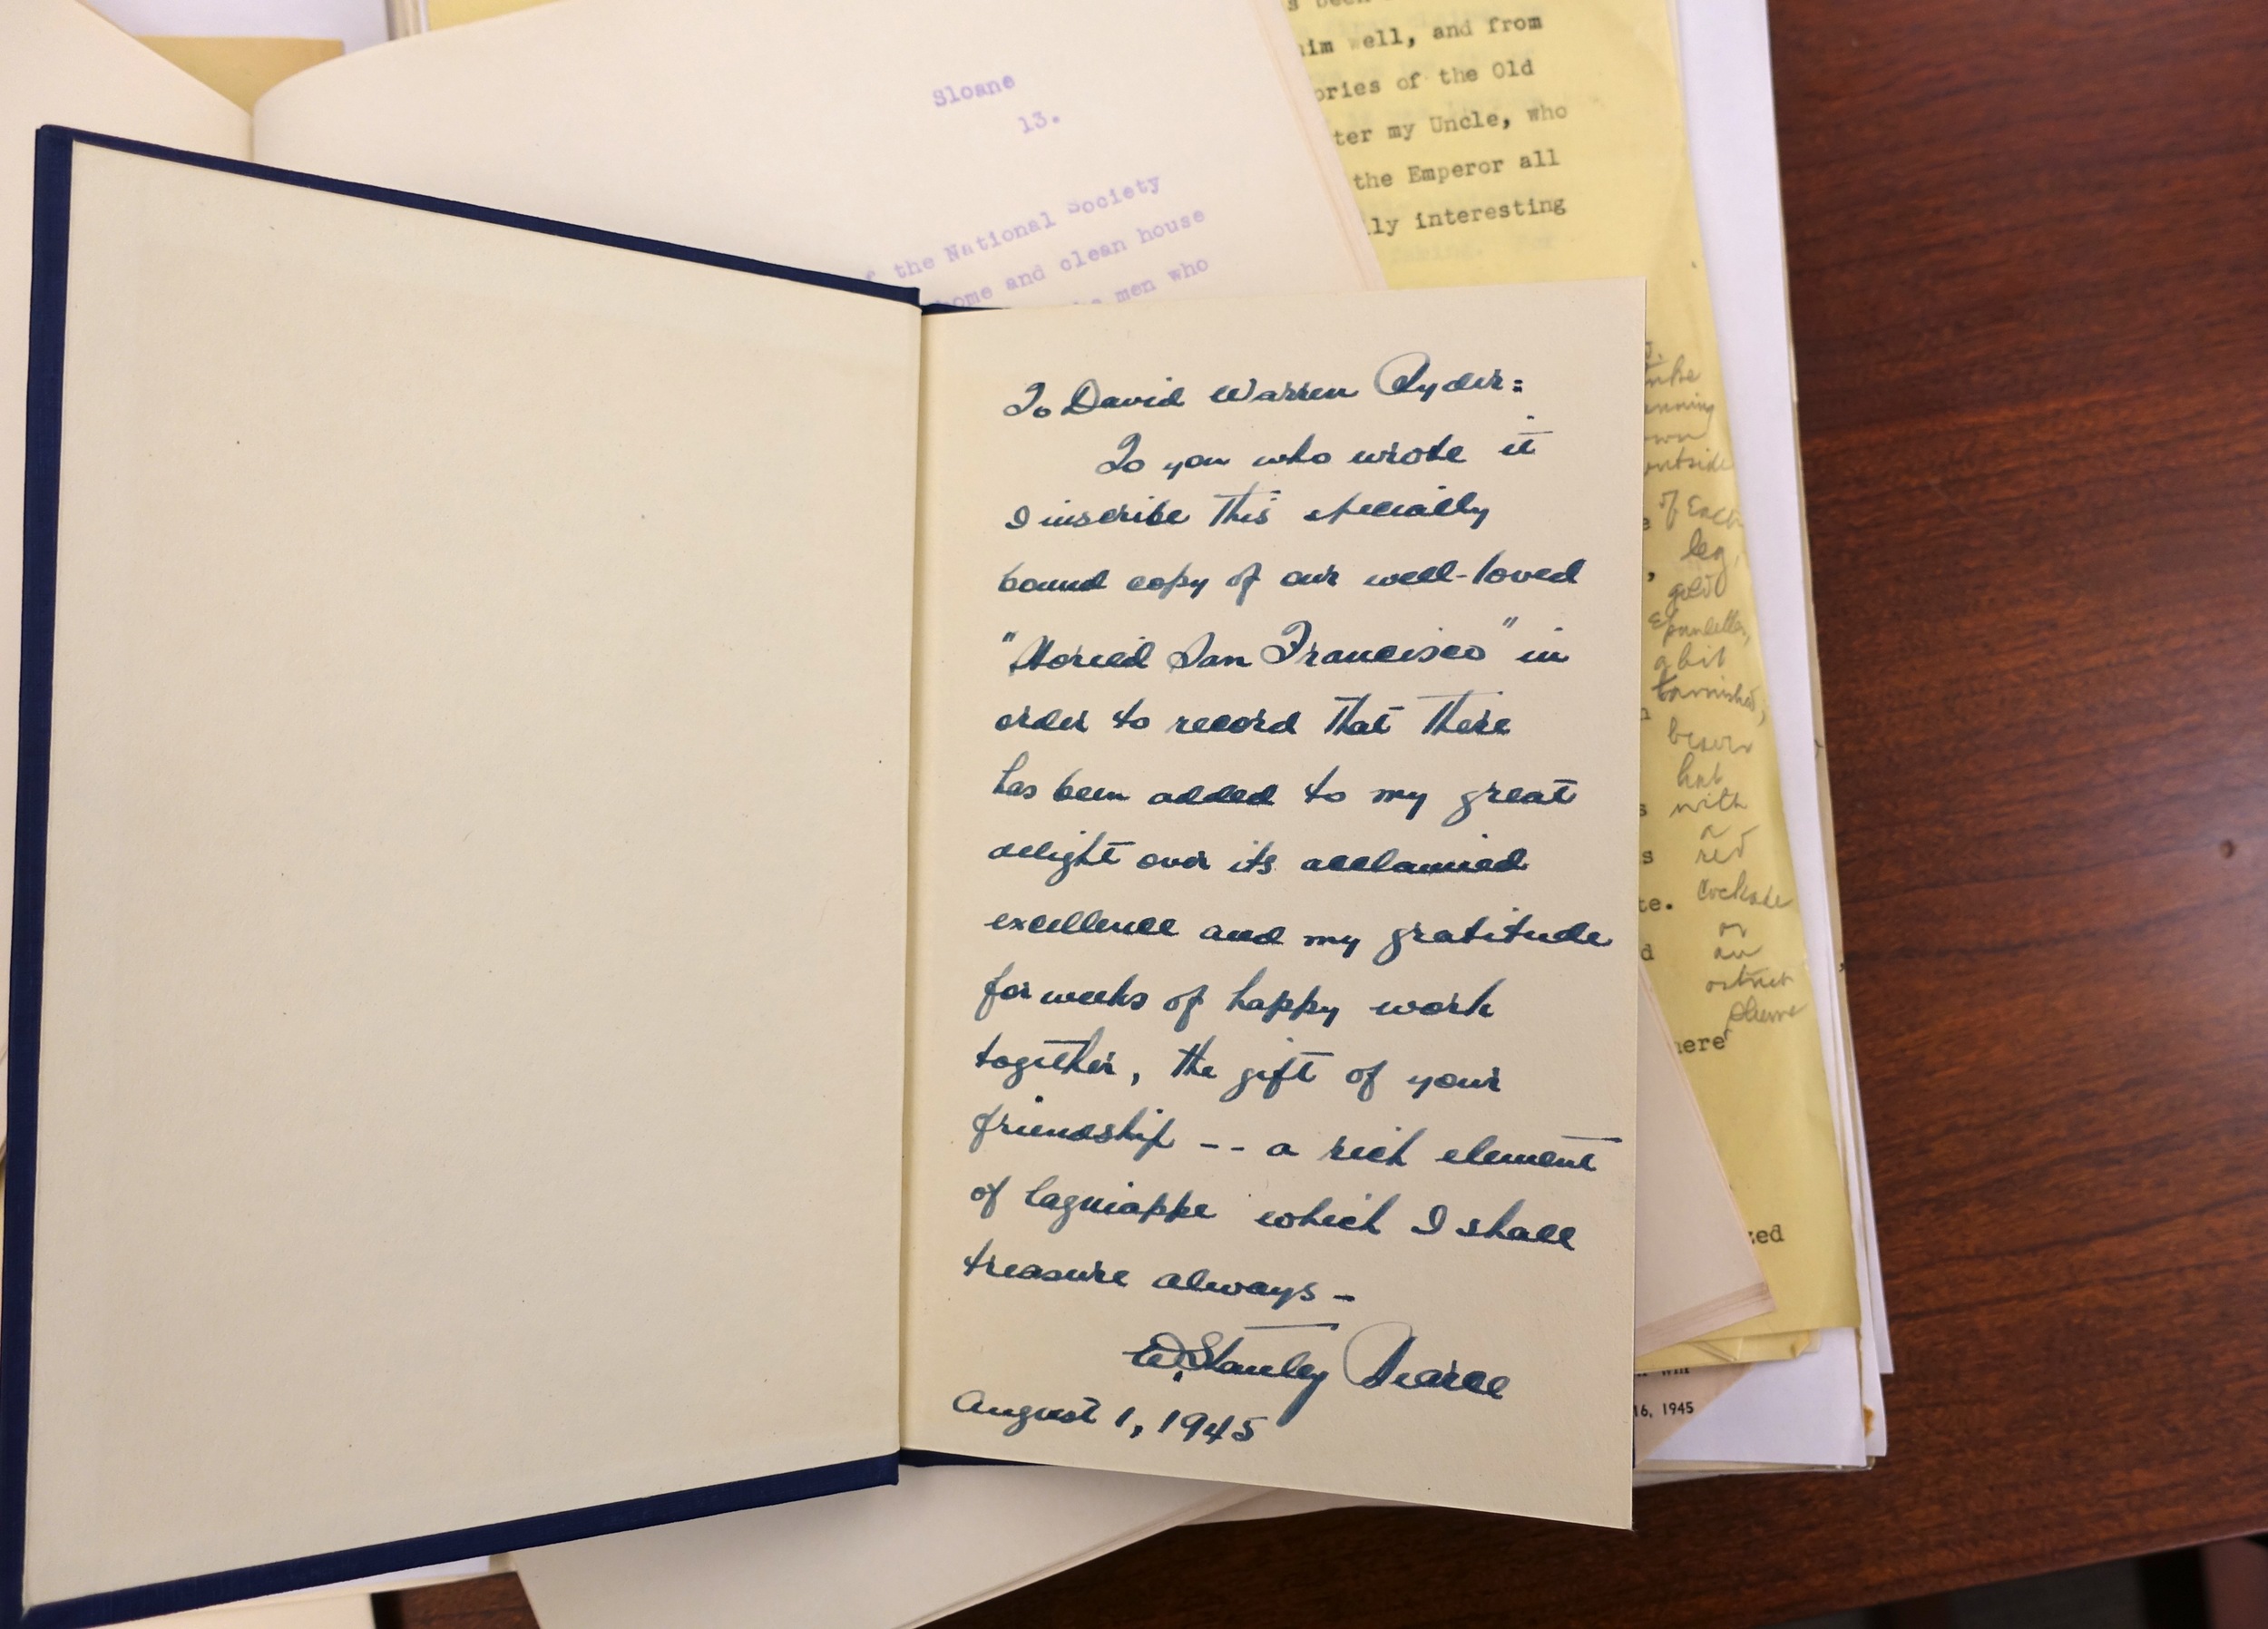 Sloane
13.
the National Society
home and clean house
men who
him well, and from
ories of the Old
ter my Uncle, who
the Emperor all
ly interesting
To David Warren Ryder:
To you who wrote it
I inscribe this specially
bound copy of our well-loved
"Storied San Francisco" in
order to record that there
has been added to my great
delight over its acclaimed
excellence and my gratitude
for weeks of happy work
together, the gift of your
friendship -- a rich element
of lagniappe which I shall
treasure always -
W. Stanley Pearce
August 1, 1945
outside
of
leg,
gold
a bit
tarnished;
beaver
hat
with
a
red
cockade
or
an
plume
te.
here
zed
16, 1945